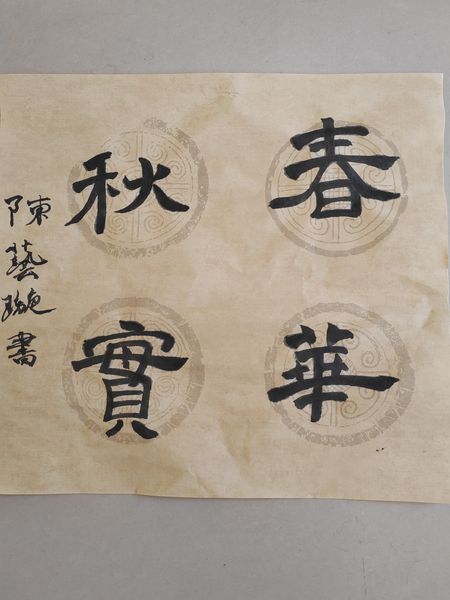 春華
秋實
陳藝璇書